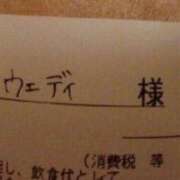 ウェディ 様
(消費税 等
し、飲食代として